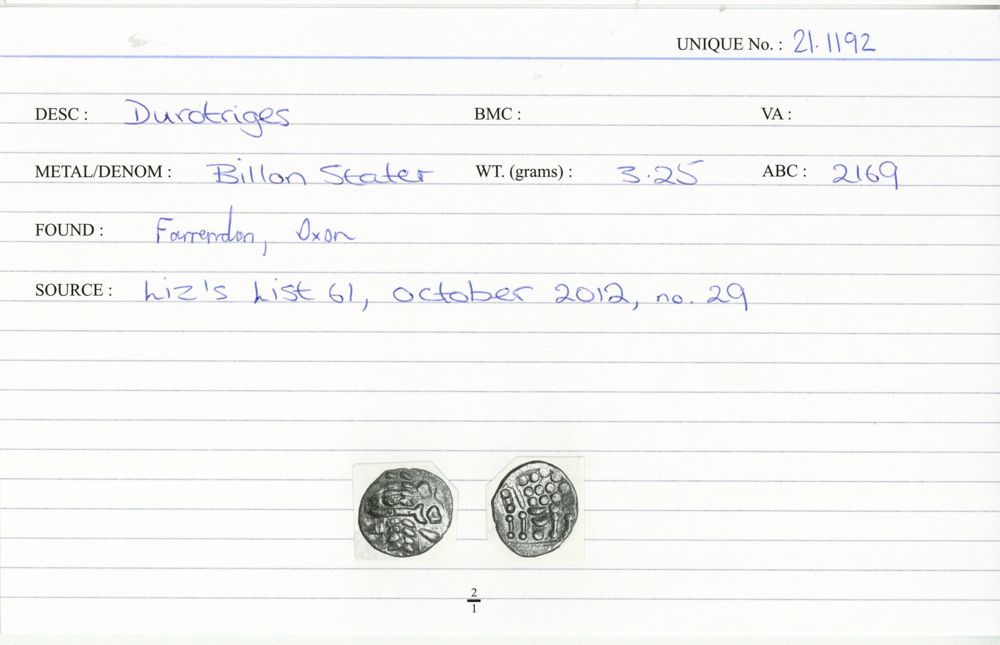 UNIQUE No. : 21.1192
DESC : Durotriges BMC : VA :
METAL/DENOM : Billon Stater WT. (grams) : 3.25 ABC : 2169
FOUND : Farrendon, Oxon
SOURCE : Liz's List 61, October 2012, no. 29
2
1